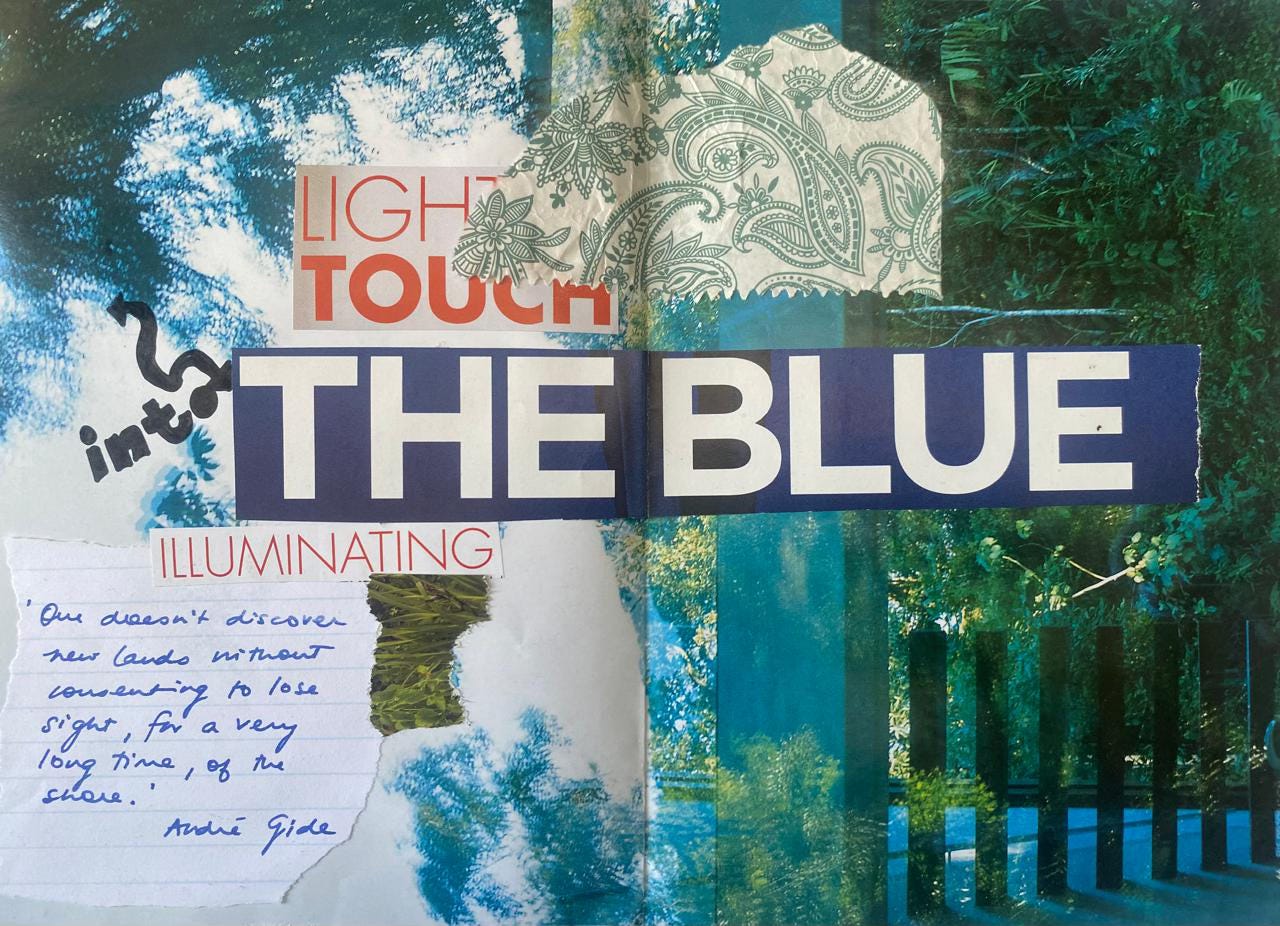 LIGHT
TOUCH
into
THE BLUE
ILLUMINATING
'One doesn't discover
new lands without
consenting to lose
sight, for a very
long time, of the
shore.'
André Gide